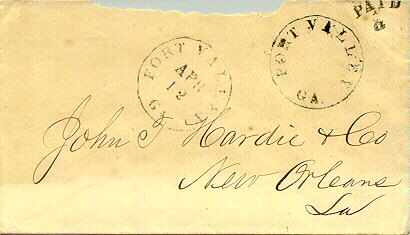 PAID
3
FORT VALLEY
GA.
FORT VALLEY
APR
12
GA
John T Hardie & Co
New Orleans
La